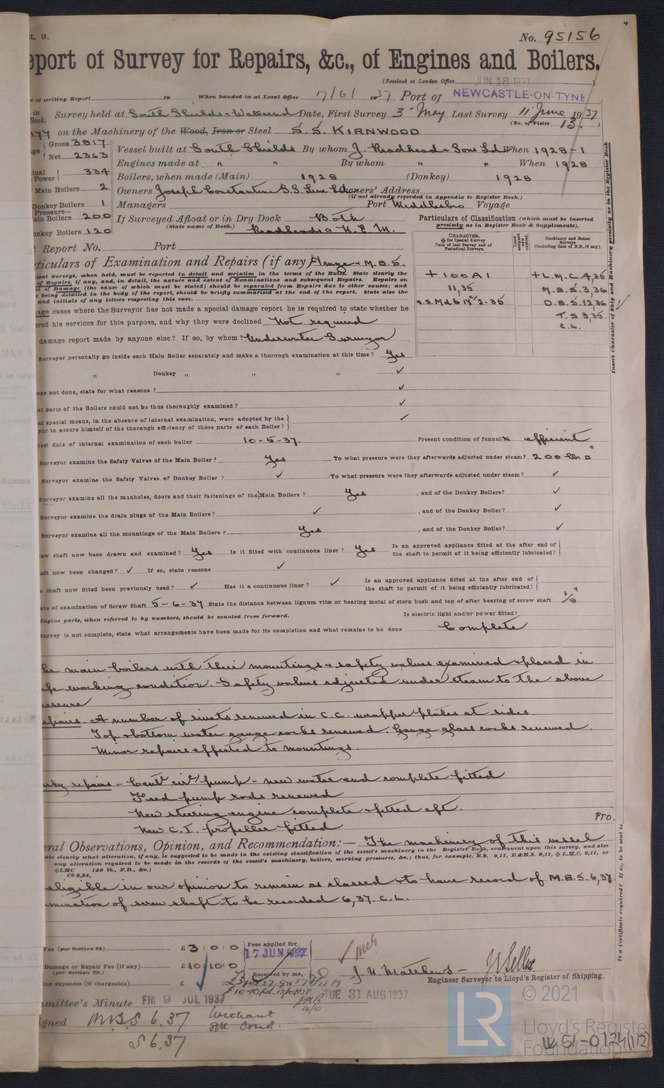 t. 9.
No. 95156
eport of Survey for Repairs, &c., of Engines and Boilers.
(Received at London Office JUN 18 1937)
e of writing Report 19 When handed in at Local Office 17/6/ 1937 Port of NEWCASTLE-ON-TYNE
Survey held at South Shields & Wallsend Date, First Survey 3rd May Last Survey 11 June 1937
(No. of Visits 13)
on the Machinery of the Wood, Iron or Steel S.S. KIRNWOOD
Gross 3817
Net 2363
Vessel built at South Shields By whom J. Readhead & Sons Ld When 1928-1
Engines made at " " By whom " " When 1928
Power 334
Boilers, when made (Main) 1928 (Donkey) 1928
Main Boilers 2
Owners Joseph Constantine S.S. Line Ld Owners' Address
(if not already recorded in Appendix to Register Book)
Donkey Boilers 1
Managers Port Middlesbro Voyage
Pressure—
ain Boilers 200
If Surveyed Afloat or in Dry Dock Both
(State name of Dock.) Readheads & N.E.M.
onkey Boilers 120
Particulars of Classification (which must be inserted
precisely as in Register Book & Supplements).
Report No. Port
rticulars of Examination and Repairs (if any) M.B.S.
CHARACTER.
Machinery and Boiler
Surveys
+ 100 A 1
11,35
+ L.M.C. 4,35
M.B.S. 3,36
D.B.S. 12,36
T.S 3,35
C.L.
age cases where the Surveyor has not made a special damage report he is required to state whether he
ered his services for this purpose, and why they were declined Not required
damage report made by anyone else? If so, by whom? Underwriters Surveyor
Surveyor personally go inside each Main Boiler separately and make a thorough examination at this time? Yes
" Donkey " " " ✓
was not done, state for what reasons? ✓
at parts of the Boilers could not be thus thoroughly examined? ✓
at special means, in the absence of internal examination, were adopted by the
yor to assure himself of the thorough efficiency of those parts of each Boiler? ✓
est date of internal examination of each boiler 10-5-37. Present condition of funnel efficient
Surveyor examine the Safety Valves of the Main Boiler? Yes To what pressure were they afterwards adjusted under steam? 200 lbs □"
Surveyor examine the Safety Valves of Donkey Boiler? ✓ To what pressure were they afterwards adjusted under steam? ✓
urveyor examine all the manholes, doors and their fastenings of the Main Boilers? Yes , and of the Donkey Boilers? ✓
Surveyor examine the drain plugs of the Main Boilers? ✓ , and of the Donkey Boiler? ✓
urveyor examine all the mountings of the Main Boilers? Yes , and of the Donkey Boiler? ✓
ew shaft now been drawn and examined? Yes Is it fitted with continuous liner? Yes Is an approved appliance fitted at the after end of
the shaft to permit of it being efficiently lubricated?
aft now been changed? ✓ If so, state reasons ✓
shaft now fitted been previously used? ✓ Has it a continuous liner? ✓ Is an approved appliance fitted at the after end of
the shaft to permit of it being efficiently lubricated?
ate of examination of Screw Shaft 5-6-37 State the distance between lignum vitæ or bearing metal of stern bush and top of after bearing of screw shaft 1/8"
Engine parts, when referred to by numbers, should be counted from forward. Is electric light and/or power fitted?
Survey is not complete, state what arrangements have been made for its completion and what remains to be done Complete
he main boilers with their mountings & safety valves examined & placed in
afe working condition. Safety valves adjusted under steam to the above
pressure
epairs. A number of rivets renewed in C.C. wrapper plates at sides.
Top & bottom water gauge cocks renewed. Gauge glass cocks renewed.
Minor repairs effected to mountings.
repairs - Centl circ pump - new water end complete fitted
Feed pump rods renewed
New steering engine complete & fitted aft.
New C.I. propeller fitted
PTO.
eral Observations, Opinion, and Recommendation:— The machinery of this vessel
eligible in our opinion to remain as classed & to have record of M.B.S. 6,37
amination of screw shaft to be recorded 6,37. C.L.
Fee (per Section 29) £3 : 0 : 0
Fees applied for
17 JUN 1937
Damage or Repair Fee (if any) £10 : 10 : 0
Received by me,
ng expenses (if chargeable) £
J. H. Matthews
Engineer Surveyor to Lloyd's Register of Shipping.
mmittee's Minute FRI 9 JUL 1937
TUE 31 AUG 1937
signed MBS 6.37
S 6.37
without
© 2021
LR
Lloyd's Register
Foundation
W51-0124(1/2)